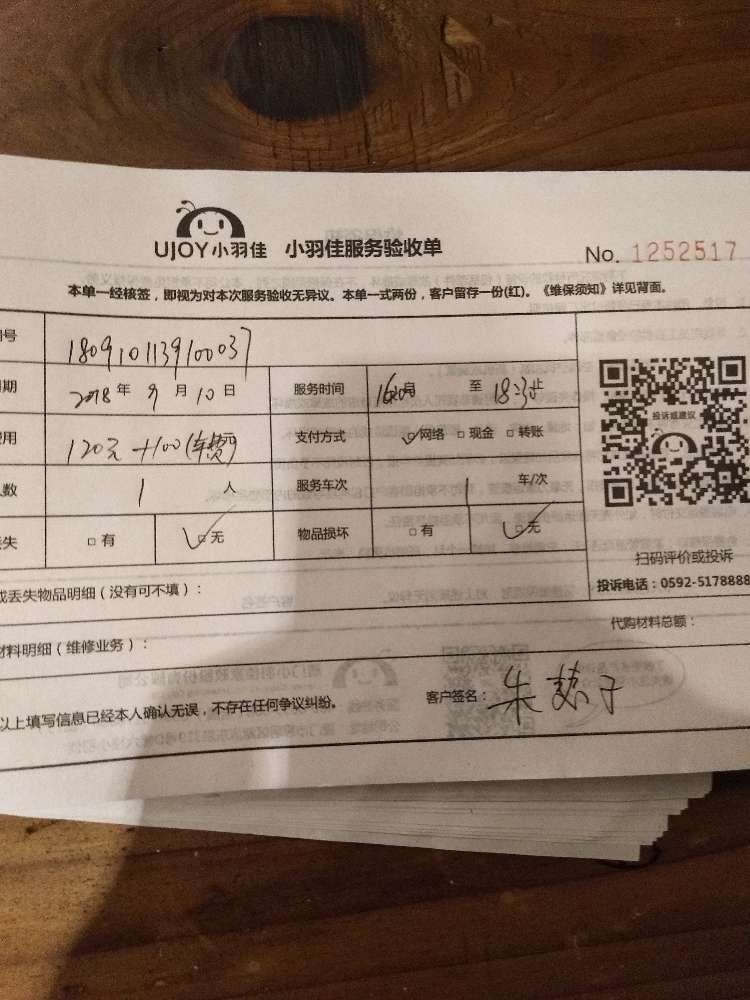 UJOY小羽佳 小羽佳服务验收单
No. 1252517
本单一经核签，即视为对本次服务验收无异议。本单一式两份，客户留存一份(红)。《维保须知》详见背面。
号 1809101139100037
期 2018年 9 月 10 日 服务时间 16:00 至 18:30 止
用 120元+100(车费) 支付方式 网络 现金 转账
人数 1 人 服务车次 1 车/次
失 有 无 物品损坏 有 无
投诉或建议
扫码评价或投诉
投诉电话：0592-5178888
丢失物品明细（没有可不填）：
材料明细（维修业务）： 代购材料总额：
以上填写信息已经本人确认无误，不存在任何争议纠纷。 客户签名： 朱 子